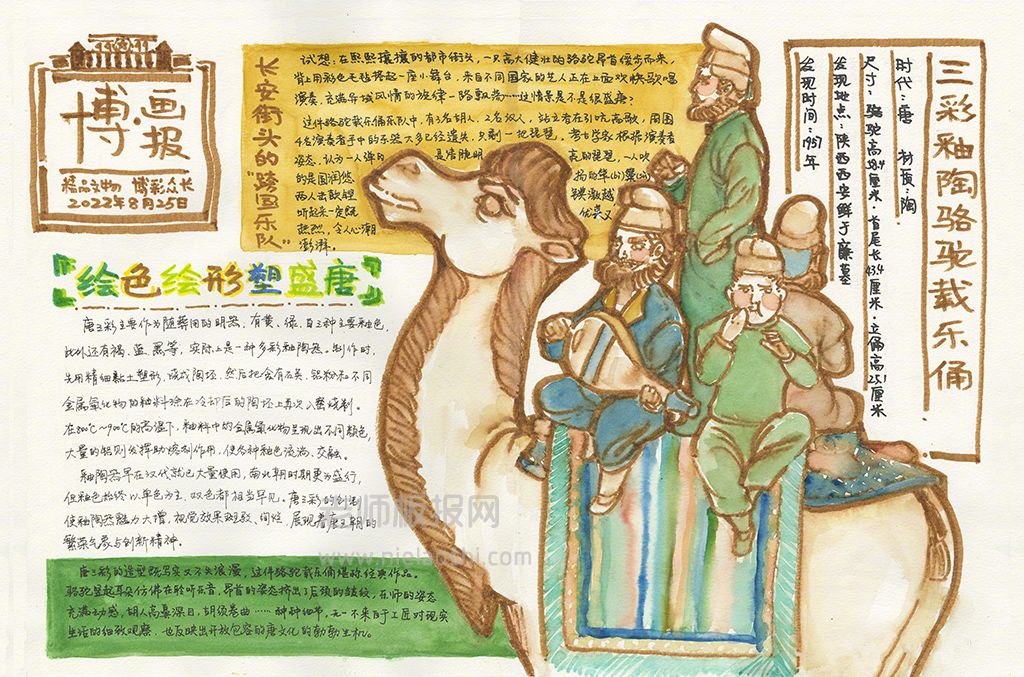 博·画报
精品文物 博彩众长
2022年8月25日
长安街头的“跨国乐队”
试想：在熙熙攘攘的都市街头，一只高大健壮的骆驼昂首缓步而来，
背上用彩色毛毡搭起一座小舞台，来自不同国家的艺人正在上面欢快歌唱
演奏，充满异域风情的旋律一路飘荡……这情景是不是很盛唐？
这件骆驼载乐俑乐队中，有3名胡人，2名汉人，站立者在引吭高歌，周围
4名演奏者手中的乐器大多已经遗失，只剩一把琵琶。考古学家根据演奏者
姿态，认为一人弹的
的是圆润悠
两人击
听起来一定既
令人心潮
澎湃。
三彩釉陶骆驼载乐俑
时代：唐 材质：陶
尺寸：骆驼高58.4厘米·首尾长43.4厘米·立俑高25.1厘米
发现地点：陕西西安鲜于廉墓
发现时间：1957年
绘色绘形塑盛唐
唐三彩主要作为随葬用的明器，有黄、绿、白三种主要釉色，
此外还有褐、蓝、黑等，实际上是一种多彩釉陶器。制作时，
先用精细黏土塑形，烧成陶坯，然后把含有石英、铅粉和不同
金属氧化物的釉料涂在冷却后的陶坯上再次入窑烧制。
在800℃~900℃的高温下，釉料中的金属氧化物呈现出不同颜色，
大量的铅则发挥助熔剂作用，使各种釉色流淌、交融。
釉陶器早在汉代就已大量使用，南北朝时期更为盛行，
但釉色始终以单色为主，双色都相当罕见。唐三彩的创制
使釉陶器魅力大增，视觉效果斑驳、绚烂，展现着唐王朝的
繁荣气象与创新精神。
唐三彩的造型既写实又不失浪漫，这件骆驼载乐俑堪称经典作品。
骆驼竖起耳朵仿佛在聆听乐音，昂首的姿态挤出了后颈的皱纹，乐师的姿态
充满动感，胡人高鼻深目，胡须卷曲……种种细节，无一不来自于工匠对现实
生活的细致观察，也反映出开放包容的唐文化的勃勃生机。
老师板报网